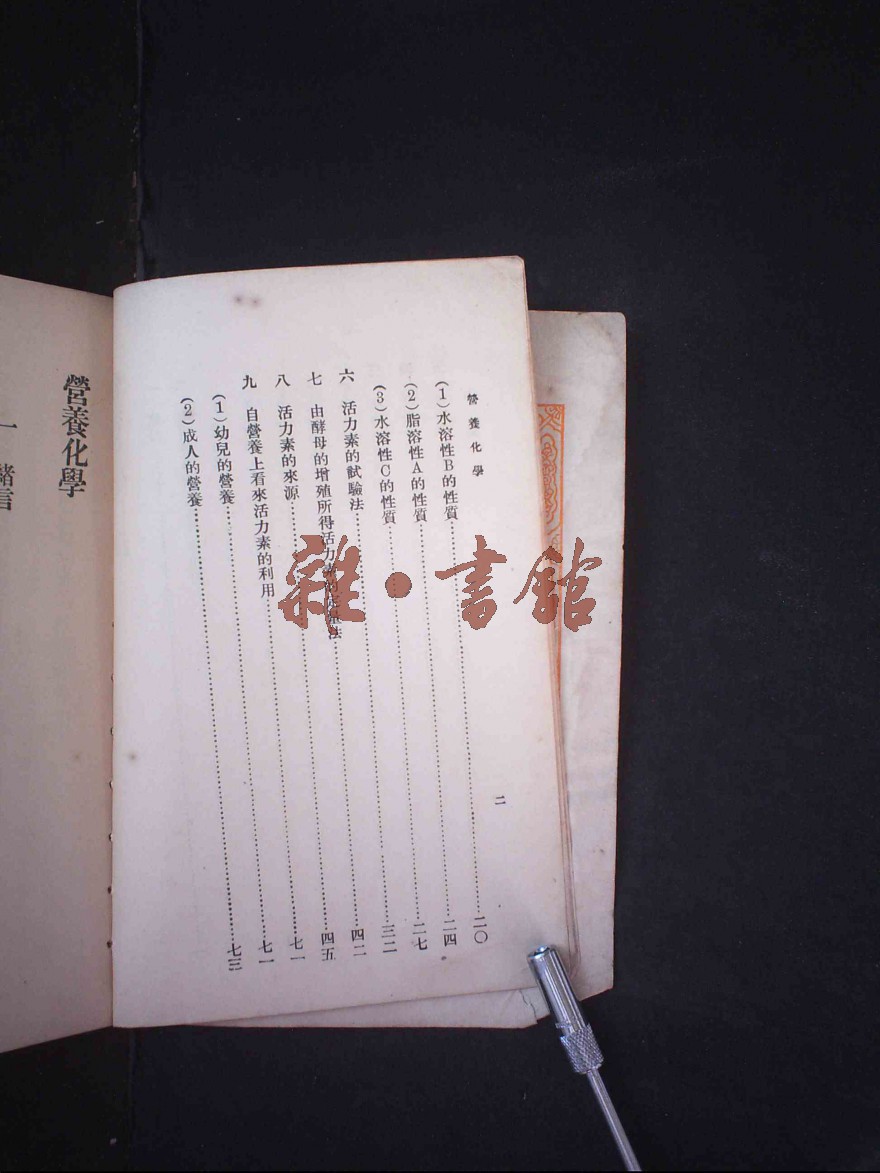 營養化學
二
(1)水溶性B的性質……二〇
(2)脂溶性A的性質……二四
(3)水溶性C的性質……二七
六 活力素的試驗法……三二
七 由酵母的增殖所得活力素的定量法……四二
八 活力素的來源……四五
九 自營養上看來活力素的利用……七一
(1)幼兒的營養……七一
(2)成人的營養……七三
營養化學
一 緒言
雜•書館